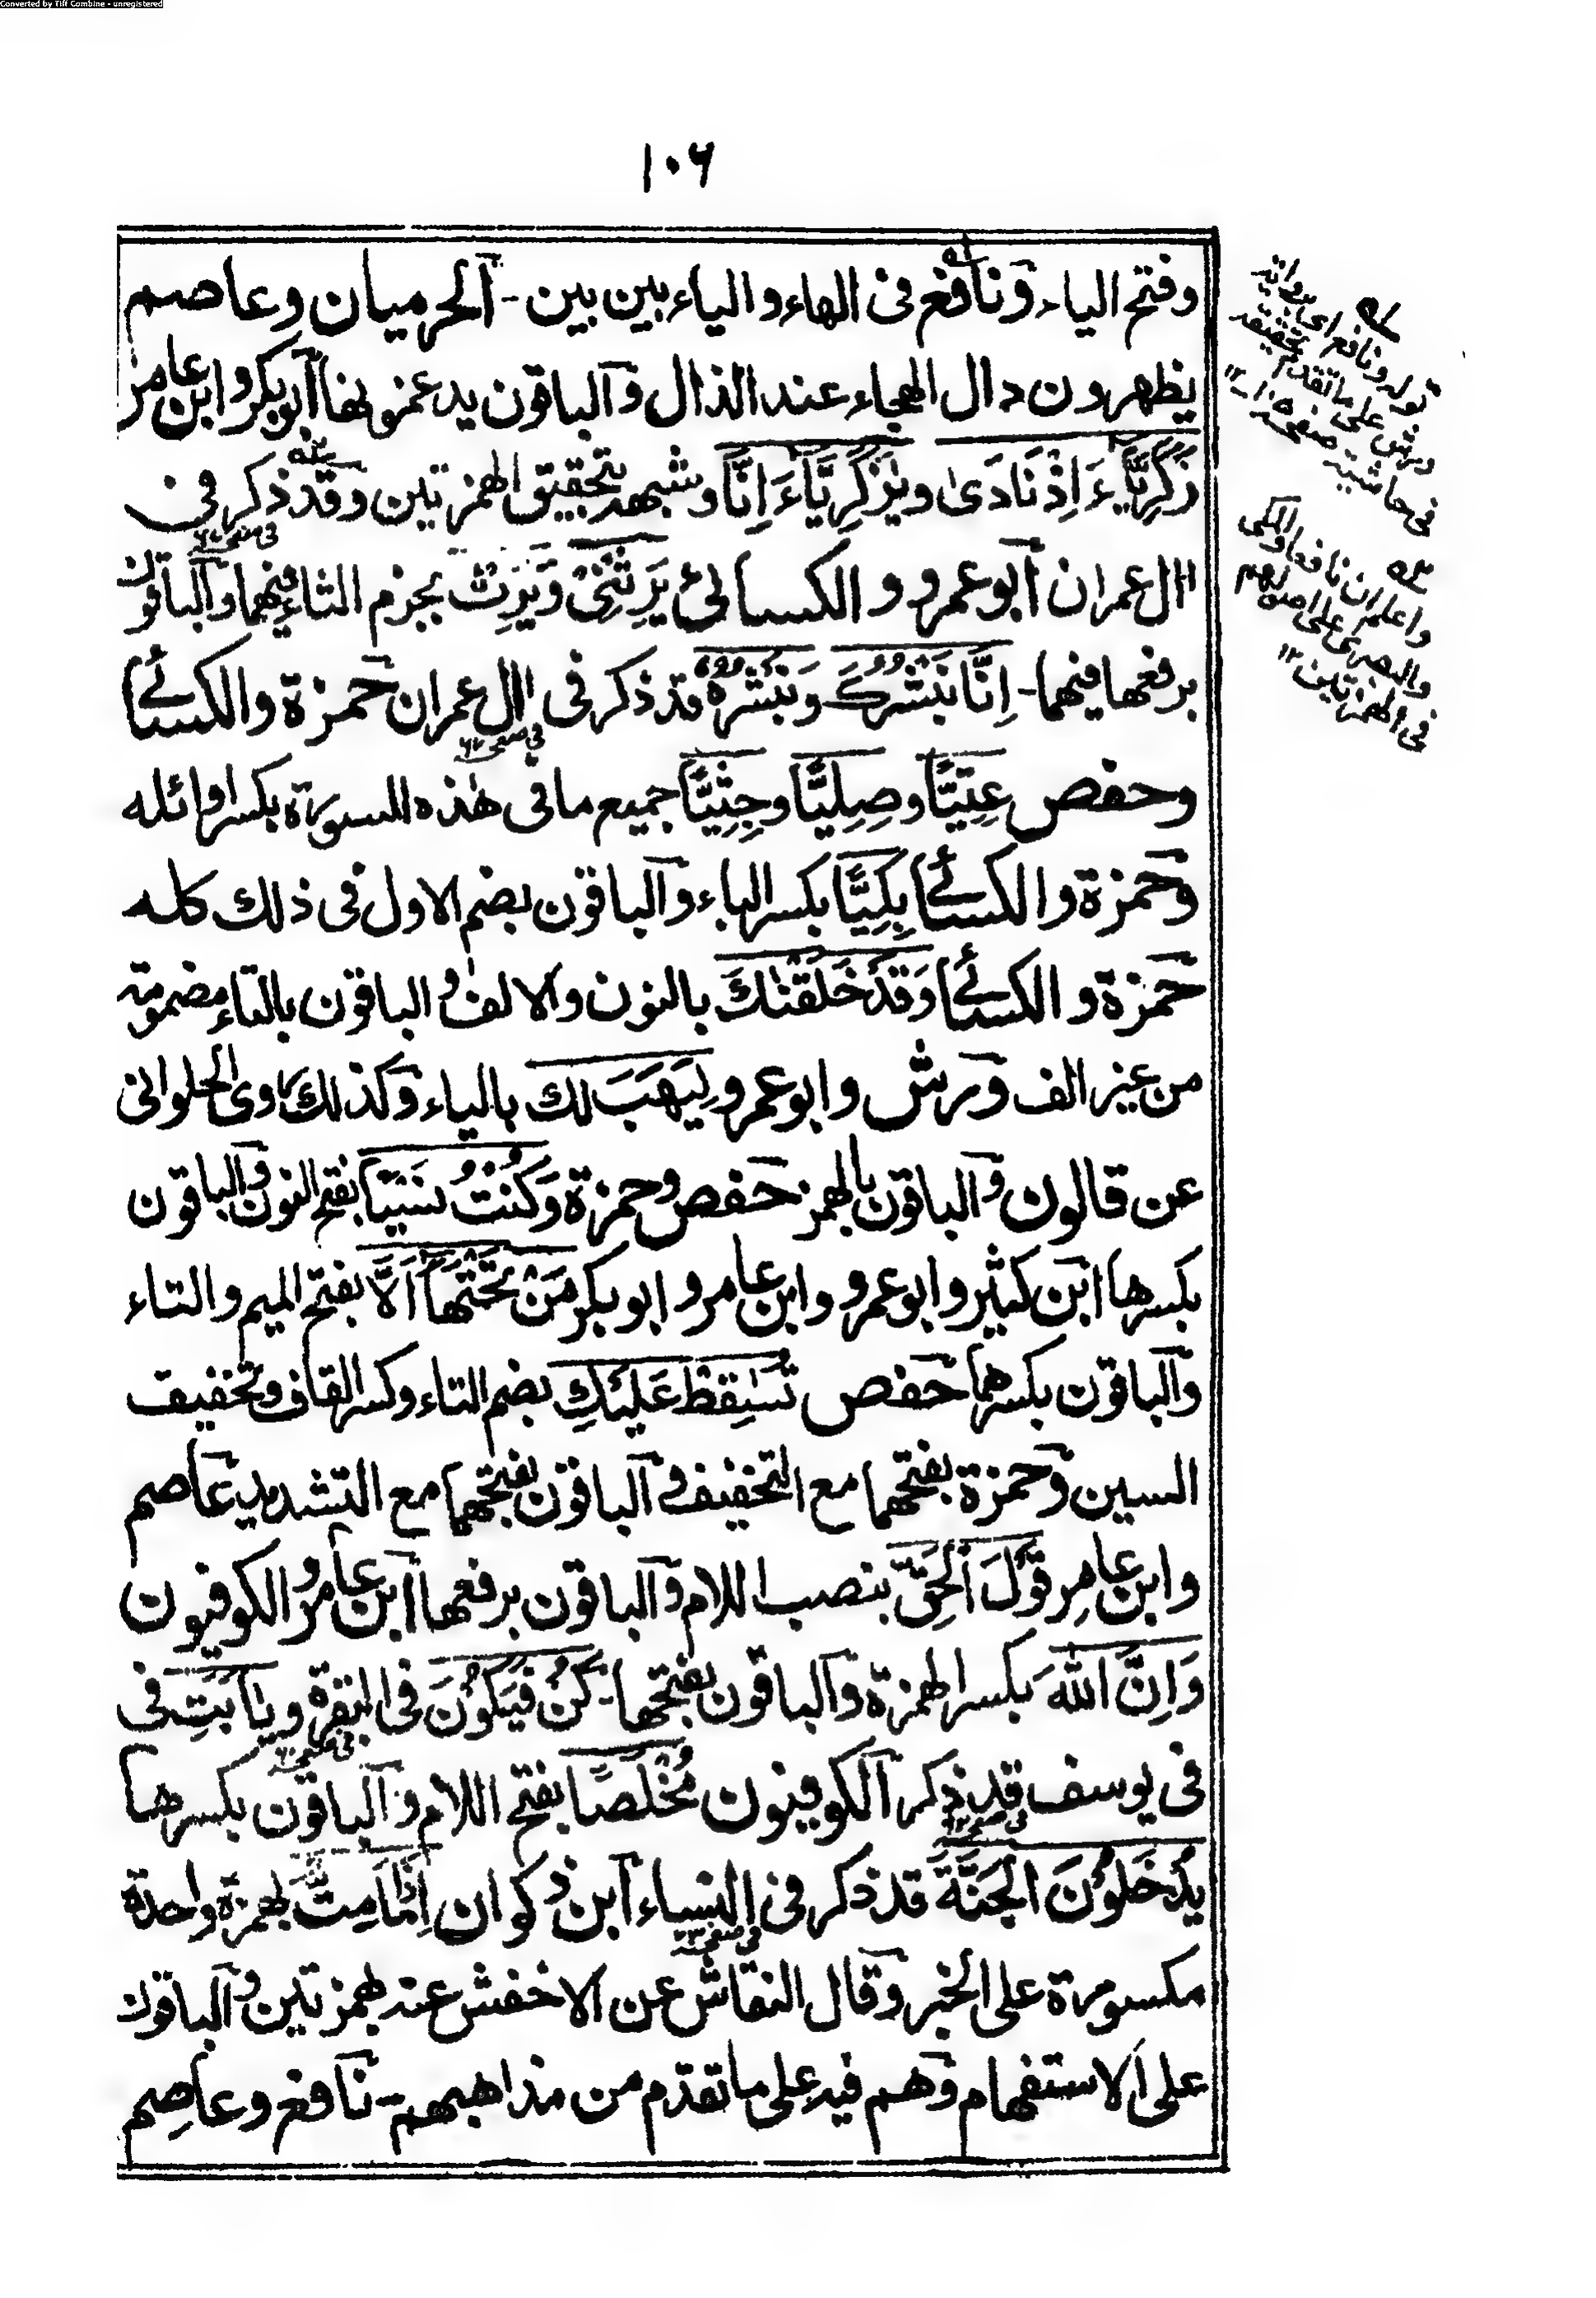 Converted by Tiff Combine - unregistered
١٠٦
وفتح الياء ونافع فى الهاء والياء بين بين - الحرميان وعاصم
يظهرون دال الهجاء عند الذال والباقون يدغمونها ابوبكر وابن عامر
زَكَرِيَّاءَ اِذْ نَادَىٰ ويٰزَكَرِيَّاءُ اِنَّا وشبهه بتحقيق الهمزتين وقد ذكر فى
اٰل عمران ابو عمرو والكسائى يَرِثْنِىْ وَيَرِثْ بجزم الثاء فيهما والباقون
فى صفحه
برفعها فيهما - اِنَّا نُبَشِّرُكَ وَنُبَشِّرُهُ قد ذكر فى اٰل عمران حمزة والكسائى
فى صفحه
وحفص عِتِيًّا وصِلِيًّا وجِثِيًّا جميع ما فى هٰذه السورة بكسر اوائله
وحمزة والكسائى بِكِيًّا بكسر الباء والباقون بضم الاول فى ذلك كله
حمزة والكسائى وَقَدْ خَلَقْنٰكَ بالنون والالف والباقون بالتاء مضمومة
من غير الف ورش وابو عمرو لِيَهَبَ لك بالياء وكذلك روى الحلوانى
عن قالون والباقون بالهمز حفص وحمزة وَكُنْتُ نَسْيًا بفتح النون والباقون
بكسرها ابن كثير وابو عمرو وابن عامر وابو بكر مَنْ تَحْتَهَا اَلَّا بفتح الميم والتاء
والباقون بكسرهما حفص تُسٰقِطْ عَلَيْكِ بضم التاء وكسر القاف وتخفيف
السين وحمزة بفتحهما مع التخفيف والباقون بفتحهما مع التشديد عاصم
وابن عامر قَوْلَ الْحَقِّ بنصب اللام والباقون برفعها ابن عامر والكوفيون
وَاِنَّ اللّٰهَ بكسر الهمزة والباقون بفتحها - كُنْ فَيَكُوْنَ فى البقرة ويٰاَبَتِ فى
فى صفحه
فى يوسف قد ذكر الكوفيون مُخْلَصًا بفتح اللام والباقون بكسرها
فى صفحه
يُدْخَلُوْنَ الْجَنَّةَ قد ذكر فى النساء ابن ذكوان اِذَا مَا مِتُّ بهمزة واحدة
فى صفحه
مكسورة على الخبر وقال النقاش عن الاخفش عنه بهمزتين والباقون
على الاستفهام وهم فيه على ما تقدم من مذاهبهم - نافع وعاصم
قوله ونافع اى
ورش على ما تقدم تحقيقه
فى حاشية صفحه
واعلم ان نافعا والمكى
والبصرى على اصولهم
فى الهمزتين ١٢